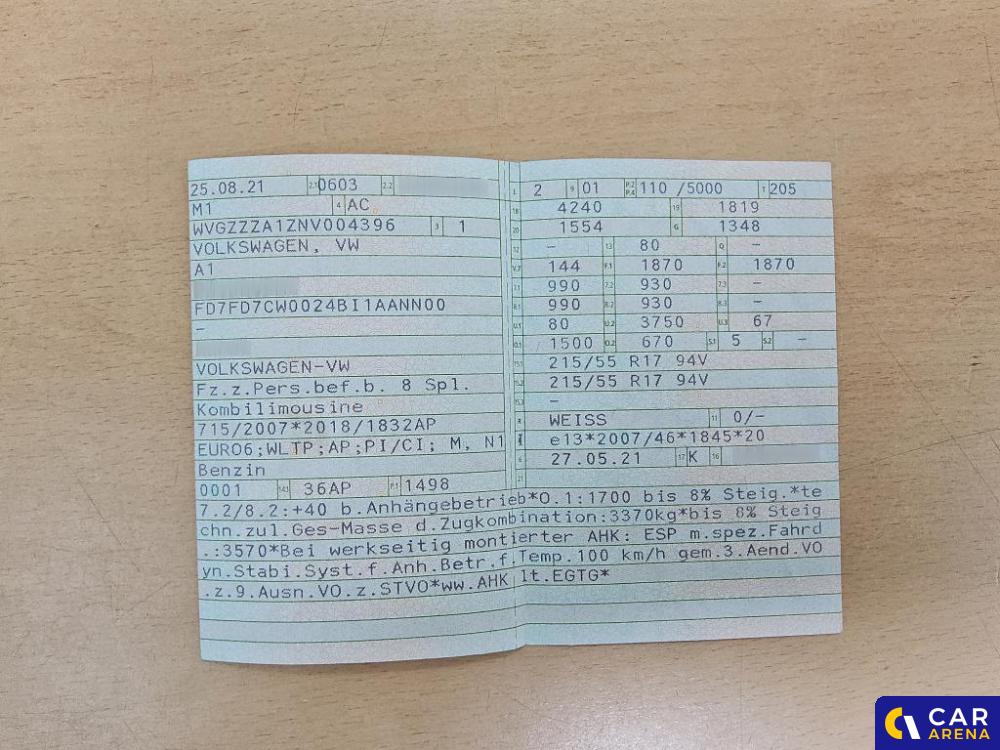 25.08.21 2.1 0603 2.2
M1 4 AC
WVGZZZA1ZNV004396 3 1
VOLKSWAGEN, VW
A1
FD7FD7CW0024BI1AANN00
–
VOLKSWAGEN-VW
Fz.z.Pers.bef.b. 8 Spl.
Kombilimousine
715/2007*2018/1832AP
EURO6;WLTP;AP;PI/CI; M, N1
Benzin
0001 14.1 36AP P.1 1498
L 2 9 01 P.2 P.4 110 /5000 T 205
18 4240 19 1819
20 1554 G 1348
12 – 13 80 Q –
V.7 144 F.1 1870 F.2 1870
7.1 990 7.2 930 7.3 –
8.1 990 8.2 930 8.3 –
U.1 80 U.2 3750 U.3 67
O.1 1500 O.2 670 S.1 5 S.2 –
15.1 215/55 R17 94V
15.2 215/55 R17 94V
15.3 –
R WEISS 11 0/–
K e13*2007/46*1845*20
6 27.05.21 17 K 16
21
7.2/8.2:+40 b.Anhängebetrieb*O.1:1700 bis 8% Steig.*te
chn.zul.Ges-Masse d.Zugkombination:3370kg*bis 8% Steig
.:3570*Bei werkseitig montierter AHK: ESP m.spez.Fahrd
yn.Stabi.Syst.f.Anh.Betr.f.Temp.100 km/h gem.3.Aend.VO
.z.9.Ausn.VO.z.STVO*ww.AHK lt.EGTG*
CAR
ARENA